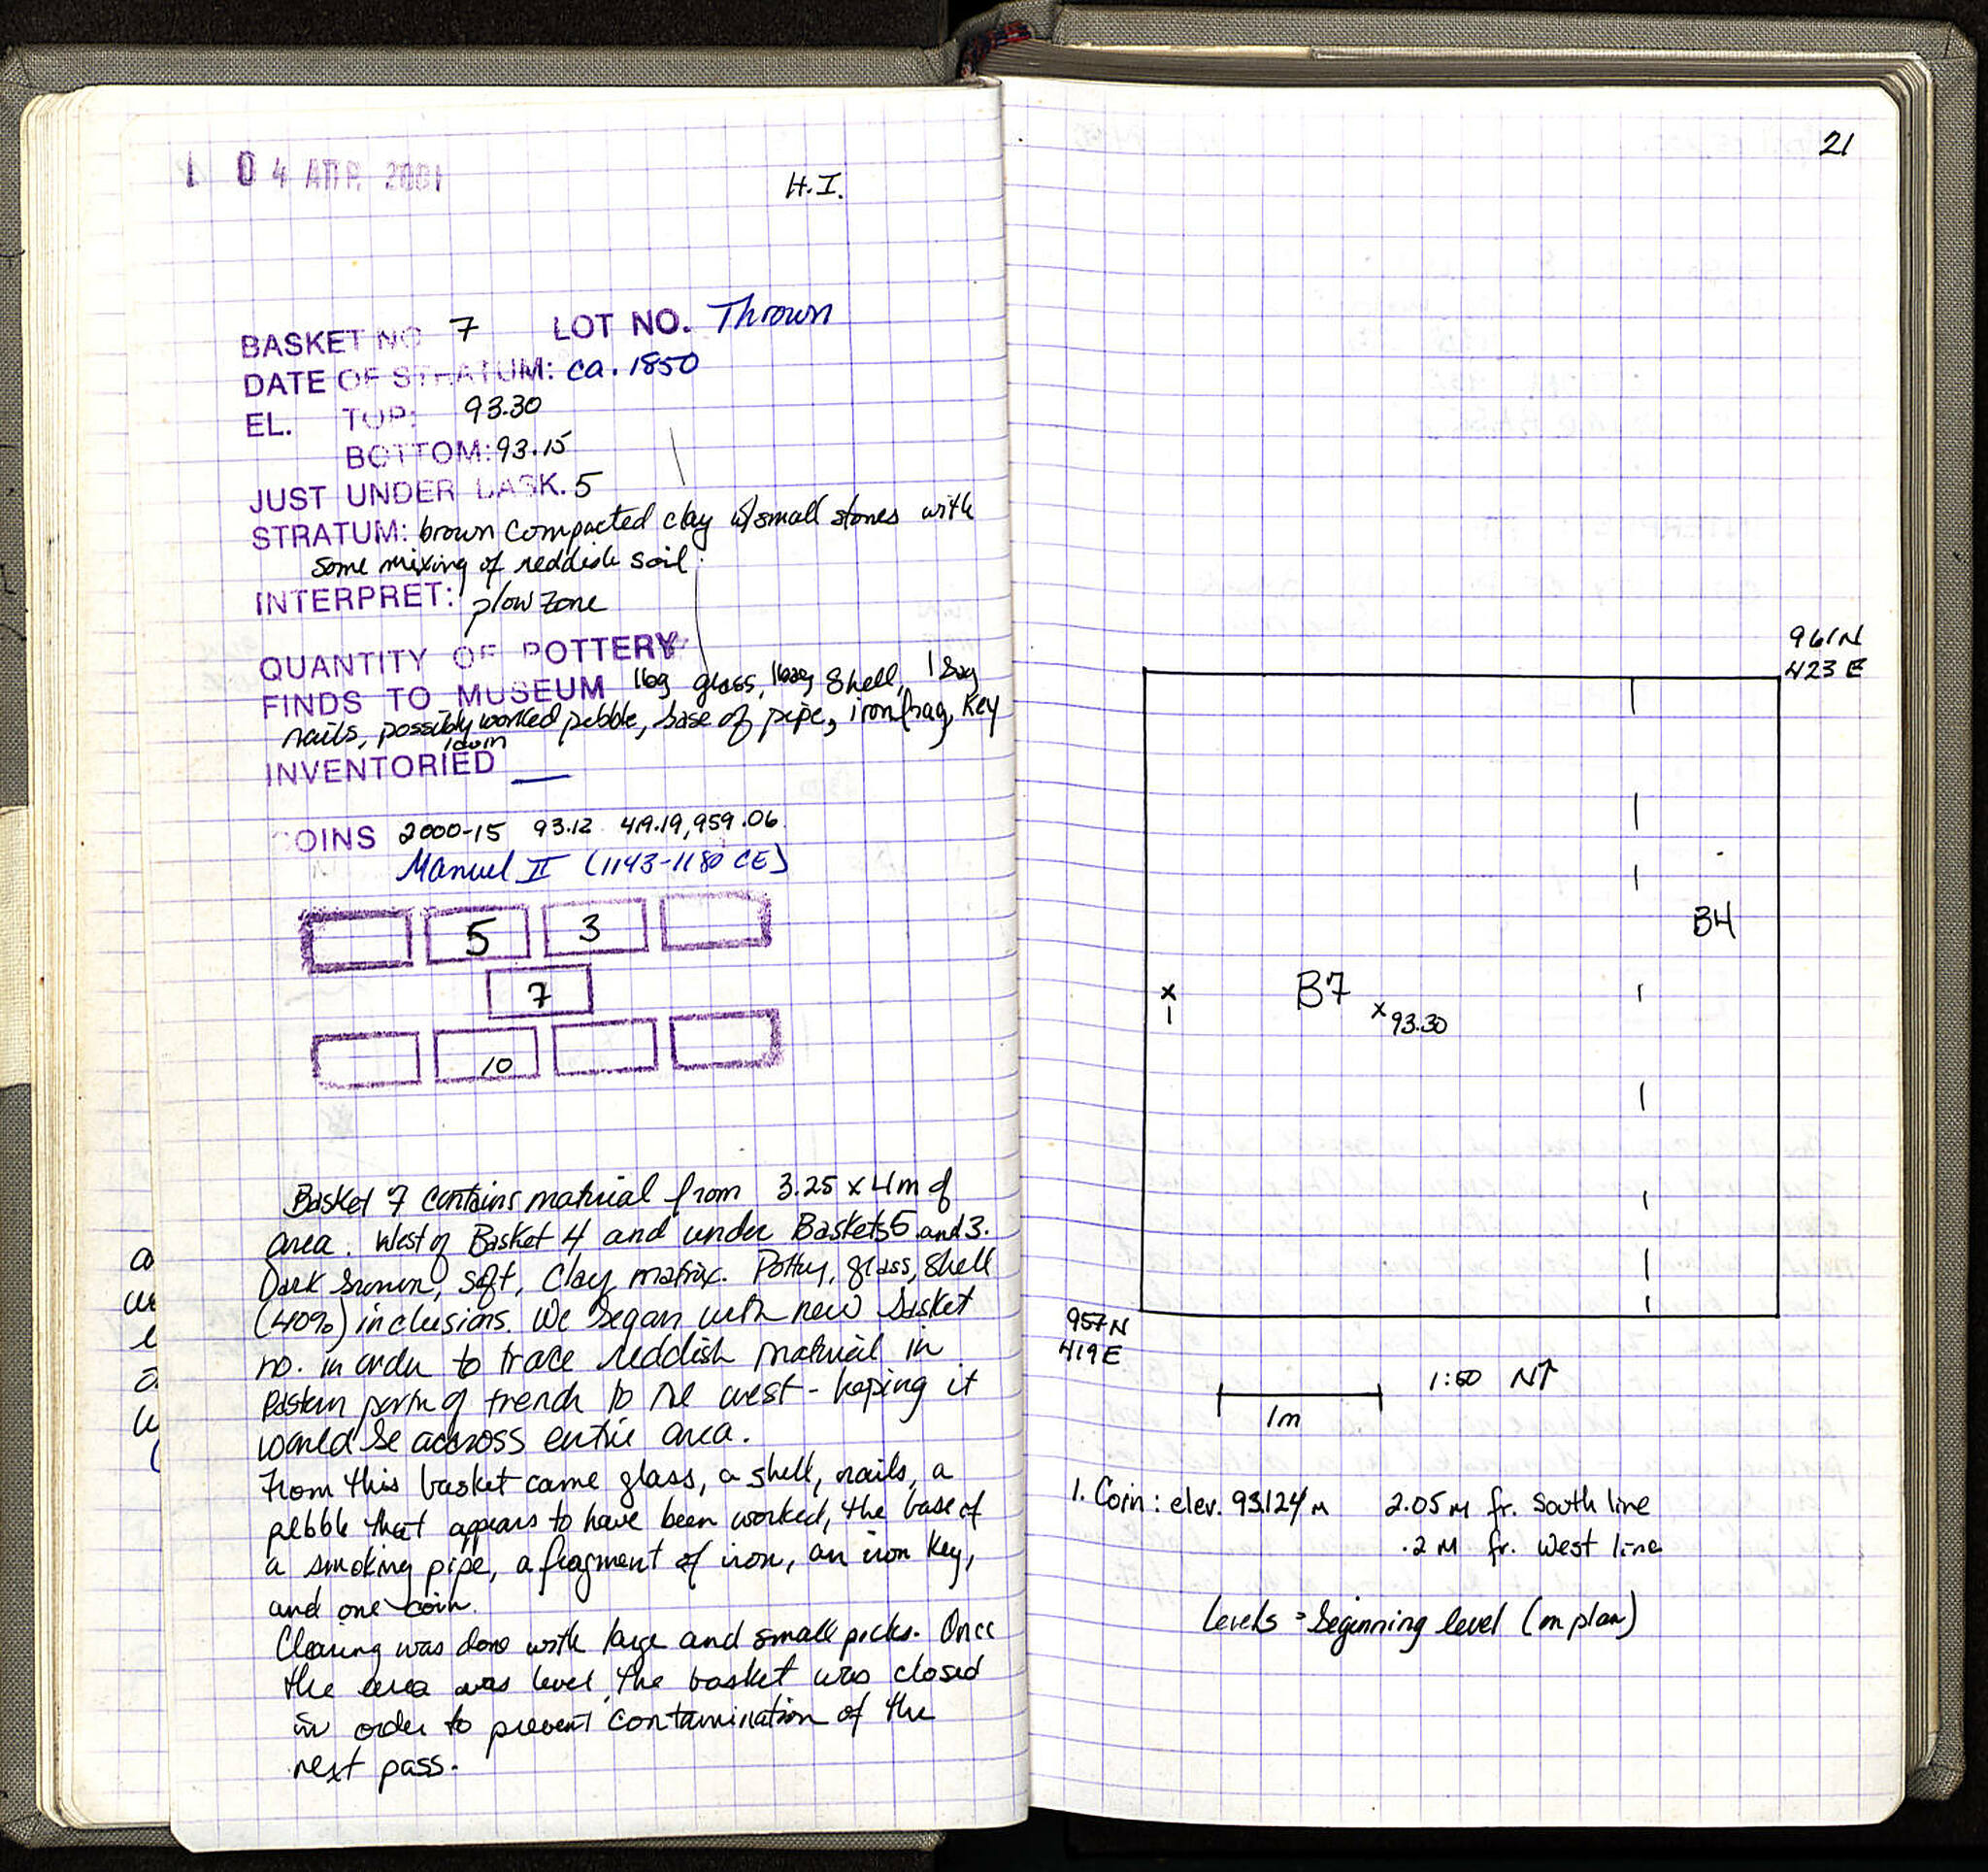 1 04 ΑΠΡ. 2001
H.I.
BASKET NO 7 LOT NO. Thrown
DATE OF STRATUM: ca. 1850
EL. TOP: 93.30
BOTTOM: 93.15
JUST UNDER BASK. 5
STRATUM: brown compacted clay w/small stones with
some mixing of reddish soil
INTERPRET: plow zone
QUANTITY OF POTTERY
FINDS TO MUSEUM 1bag glass, 1bag shell, 1 bag
nails, possibly worked pebble, base of pipe, iron frag, key
1coin
INVENTORIED —
COINS 2000-15 93.12 419.19, 959.06
Manuel II (1143-1180 CE)
5 3
7
10
Basket 7 contains material from 3.25 x 4m of
area. West of Basket 4 and under Baskets 5 and 3.
Dark brown, soft, clay matrix. Pottery, glass, shell
(40%) inclusions. We began with new basket
no. in order to trace reddish material in
Eastern part of trench to the west - hoping it
would be accross entire area.
From this basket came glass, a shell, nails, a
pebble that appears to have been worked, the base of
a smoking pipe, a fragment of iron, an iron key,
and one coin.
Clearing was done with large and small picks. Once
the area was level, the basket was closed
in order to prevent contamination of the
next pass.
21
961N
423 E
B4
B7
x
1
x 93.30
957N
419E
1:50 N↑
1m
1. Coin: elev. 93.124 M 2.05 M fr. South line
.2 M fr. West line
Levels = beginning level (on plan)